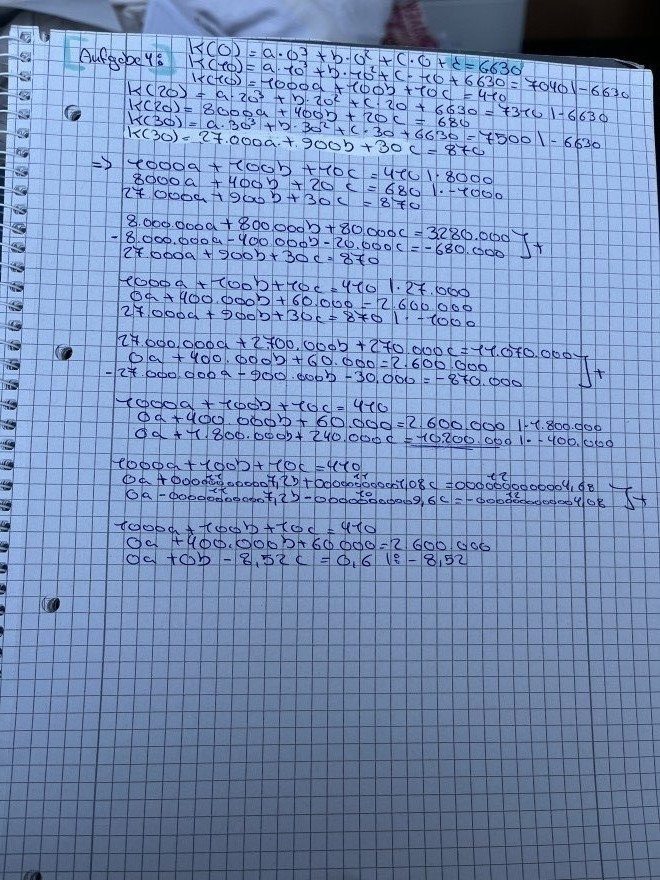 Aufgabe 4:
K(0) = a·0³ + b·0² + c·0 + d = 6630
K(10) = a·10³ + b·10² + c·10 + 6630 = 7040 | -6630
K(10) = 1000a + 100b + 10c = 410
K(20) = a·20³ + b·20² + c·20 + 6630 = 7310 | -6630
K(20) = 8000a + 400b + 20c = 680
K(30) = a·30³ + b·30² + c·30 + 6630 = 7500 | -6630
K(30) = 27.000a + 900b + 30c = 870
=> 1000a + 100b + 10c = 410 | ·8000
8000a + 400b + 20c = 680 | ·-1000
27.000a + 900b + 30c = 870
8.000.000a + 800.000b + 80.000c = 3280.000 ] +
-8.000.000a - 400.000b - 20.000c = -680.000
27.000a + 900b + 30c = 870
1000a + 100b + 10c = 410 | ·27.000
0a + 400.000b + 60.000 = 2.600.000
27.000a + 900b + 30c = 870 | ·-1000
27.000.000a + 2700.000b + 270.000c = 11.070.000 ] +
0a + 400.000b + 60.000 = 2.600.000
-27.000.000a - 900.000b - 30.000 = -870.000
1000a + 100b + 10c = 410
0a + 400.000b + 60.000 = 2.600.000 | ·1.800.000
0a + 1.800.000b + 240.000c = 10200.000 | ·-400.000
1000a + 100b + 10c = 410
1000a + 100b + 10c = 410
0a + 400.000b + 60.000 = 2.600.000
0a + 0b - 8,52c = 0,6 | : -8,52